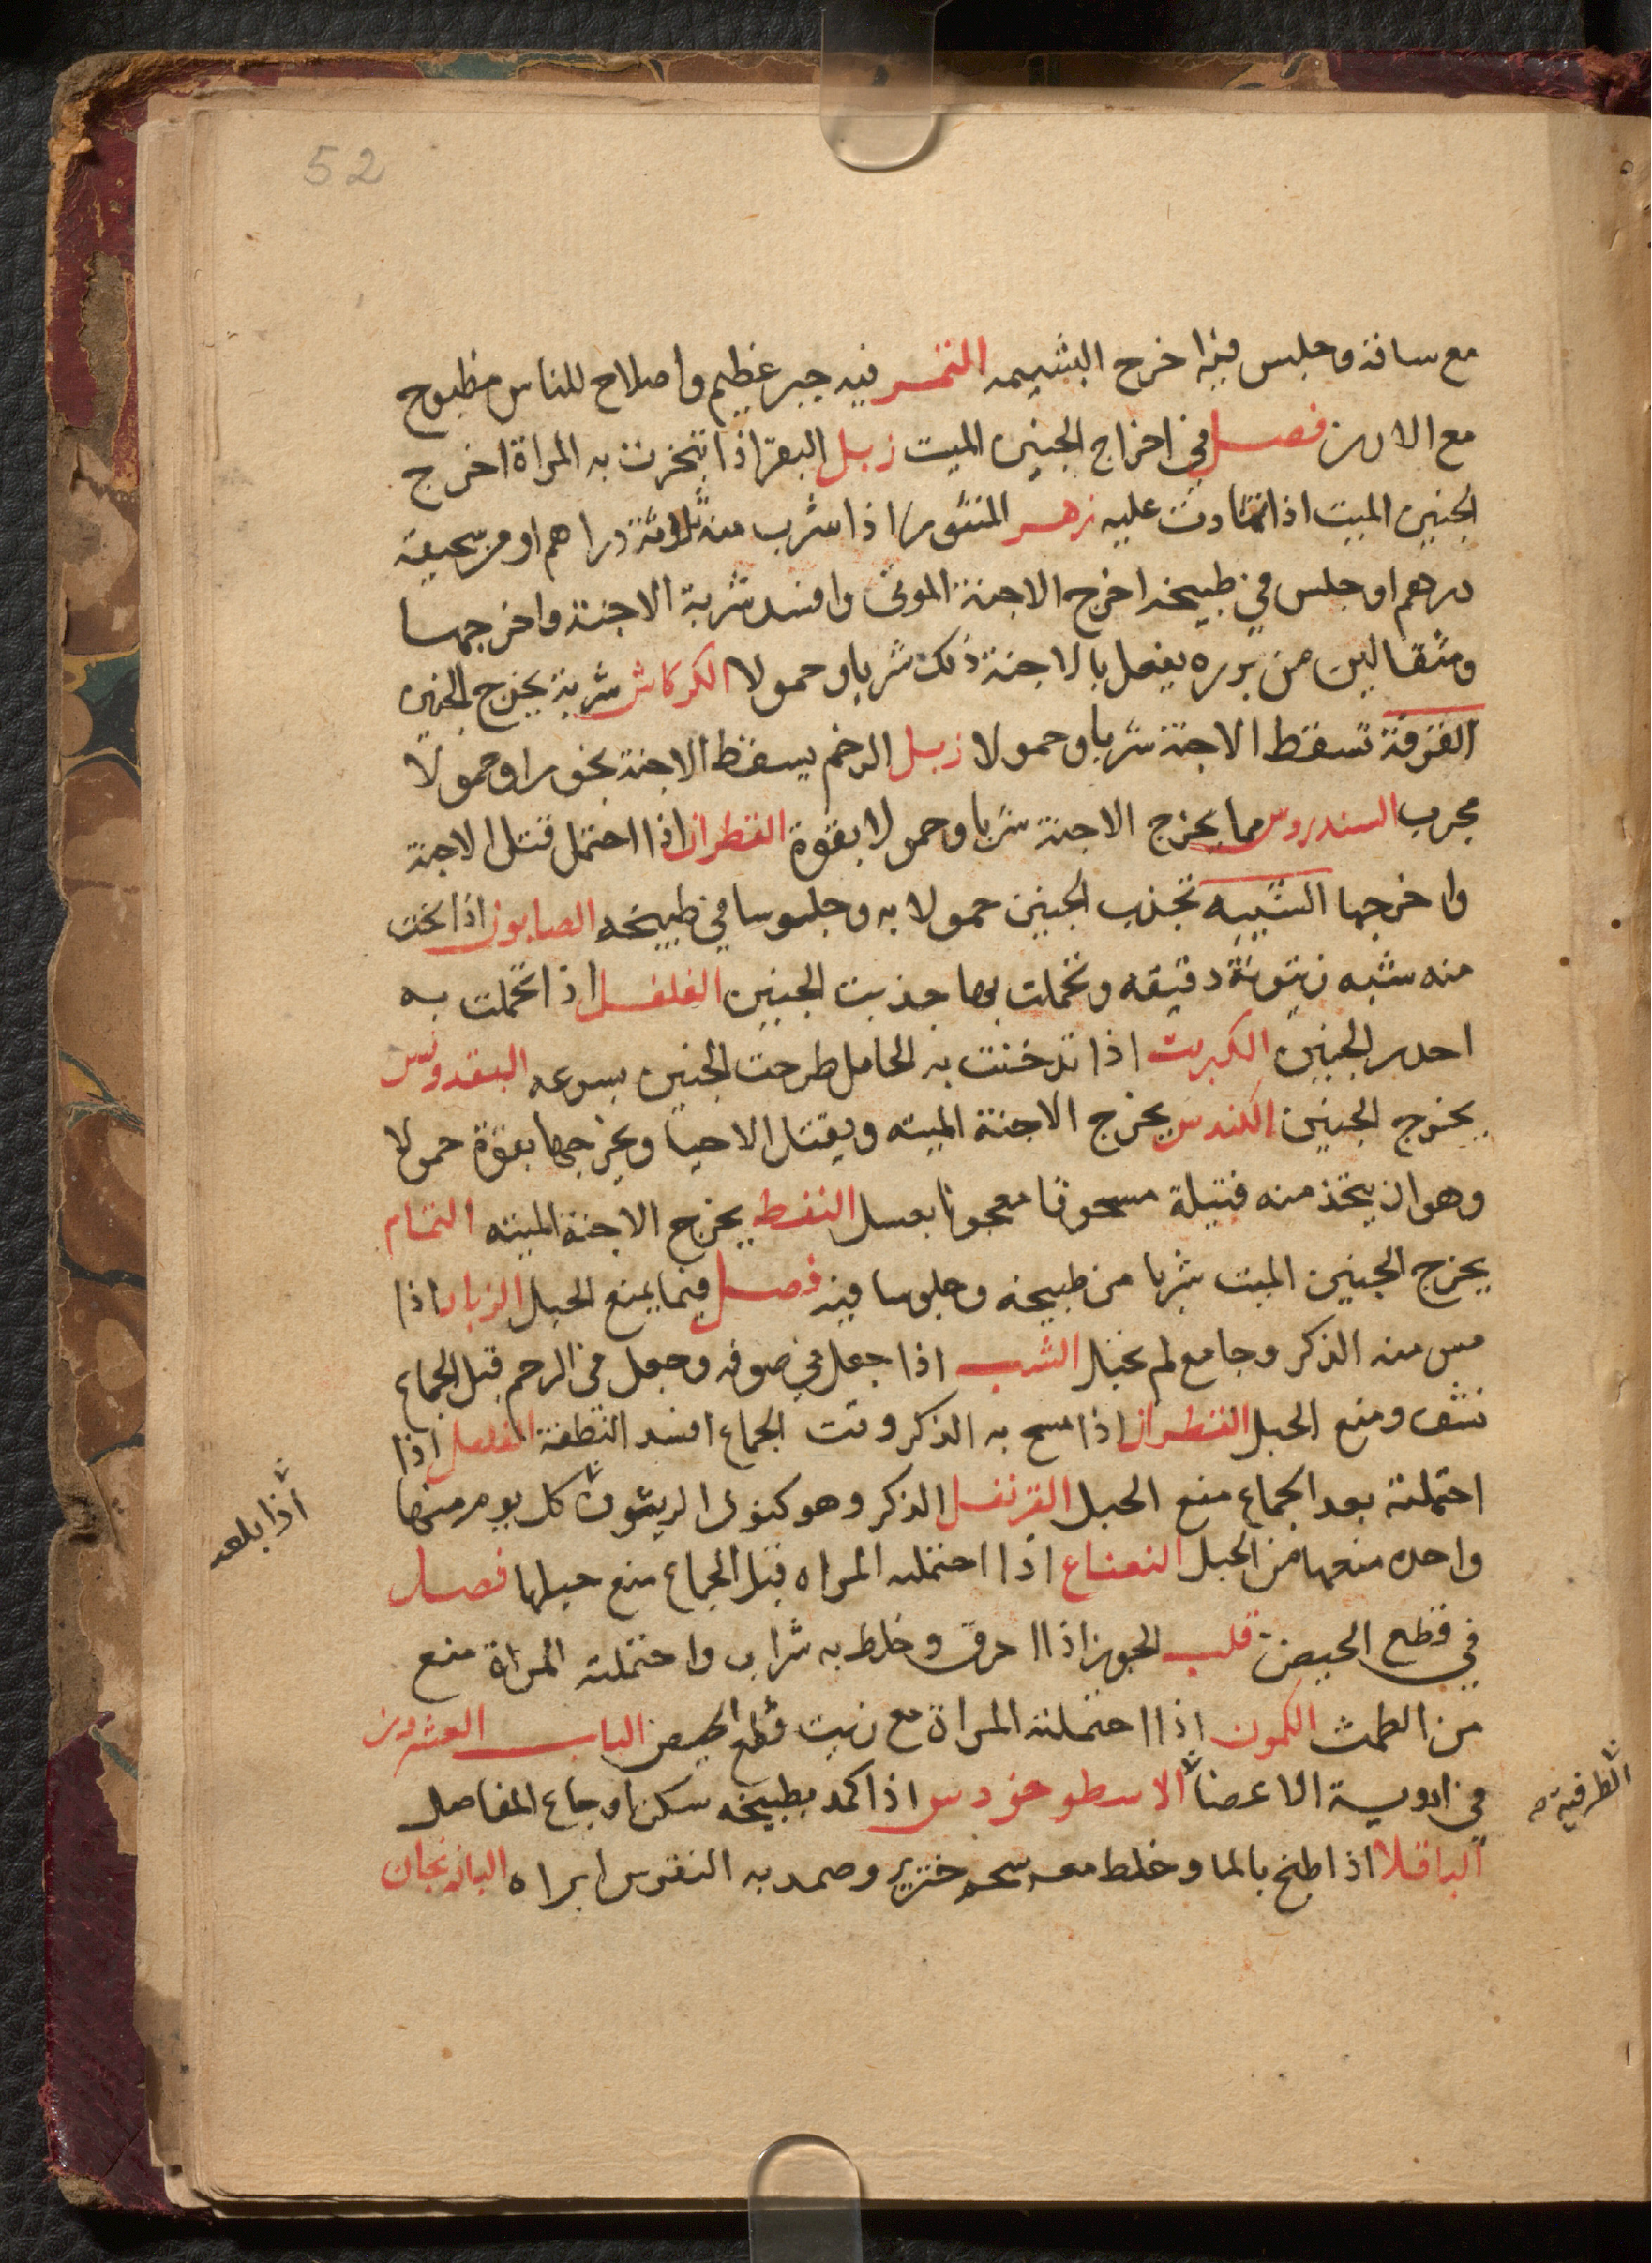 52
مع ساقه وجلس فيه اخرج البشيمه التمر فيه جبر عظيم واصلاح للناس مطبوخ
مع الارز فصل في اخراج الجنين الميت زبل البقر اذا تبخرت به المراة اخرج
الجنين الميت اذا تمادت عليه زهر المنثور اذا شرب منه ثلاثة دراهم او من سحيقه
درهم او جلس في طبيخه اخرج الاجنة الموتى وافسد شربة الاجنة واخرجها
ومثقالين من بزره يفعل بالاجنة ذلك شربا وحمولا الكركاش شربة يخرج الجنين
القرفة تسقط الاجنة شربا وحمولا زبل الرخم يسقط الاجنة بخورا وحمولا
مجرب السندروس مما يخرج الاجنة شربا وحمولا بقوة القطران اذا احتمل قتل الاجنة
واخرجها الشيبه تجذب الجنين حمولا به وجلوسا في طبيخه الصابون اذا نحت
منه شبه زيتونة دقيقه وتحملت بها جذبت الجنين الفلفل اذا تحملت به
احدر الجنين الكبريت اذا تدخنت به الحامل طرحت الجنين بسرعه البقدونس
يخرج الجنين الكندس يخرج الاجنة الميته ويقتل الاحيا ويخرجها بقوة حمولا
وهو ان يتخذ منه فتيلة مسحوقا معجونا بعسل النفط يخرج الاجنة الميته النمام
يخرج الجنين الميت شربا من طبيخه وجلوسا فيه فصل فيما يمنع الحبل الزباد اذا
مس منه الذكر وجامع لم تحبل الشب اذا جعل في صوفه وجعل في الرحم قبل الجماع
نشف ومنع الحبل القطران اذا مسح به الذكر وقت الجماع افسد النطفة الفلفل اذا
احتملته بعد الجماع منع الحبل القرنفل الذكر وهو كنوى الزيتون كل يوم منها
اذا بلعت
واحده منعها من الحبل النعناع اذا احتملته المراه قبل الجماع منع حبلها فصل
في قطع الحيض قلب الجوز اذا احرق وخلط به شراب واحتملته المراة منع
من الطمث الكمون اذا احتملته المراة مع زيت قطع الحيض الباب العشرون
في ادوية الاعضا الاسطوخودس اذا كمد بطبيخه سكن اوجاع المفاصل
الطرفية
الباقلا اذا طبخ بالما وخلط معه شحم خنزير وضمد به النقرس ابراه الباذنجان